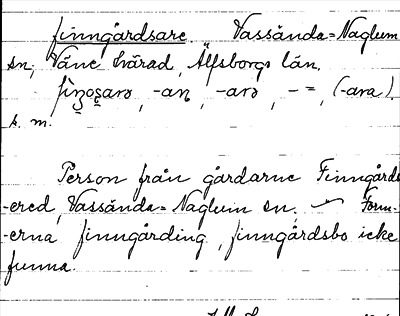 finngårdsare. Vassända=Naglum
sn, Väne härad, Älfsborgs län.
-an, -arə, - =, (-ara).
s. m.
Person från gårdarne Finngårds
-ered, Vassända=Naglum sn. – Form-
-erna finngårding, finngårdsbo icke
funna.